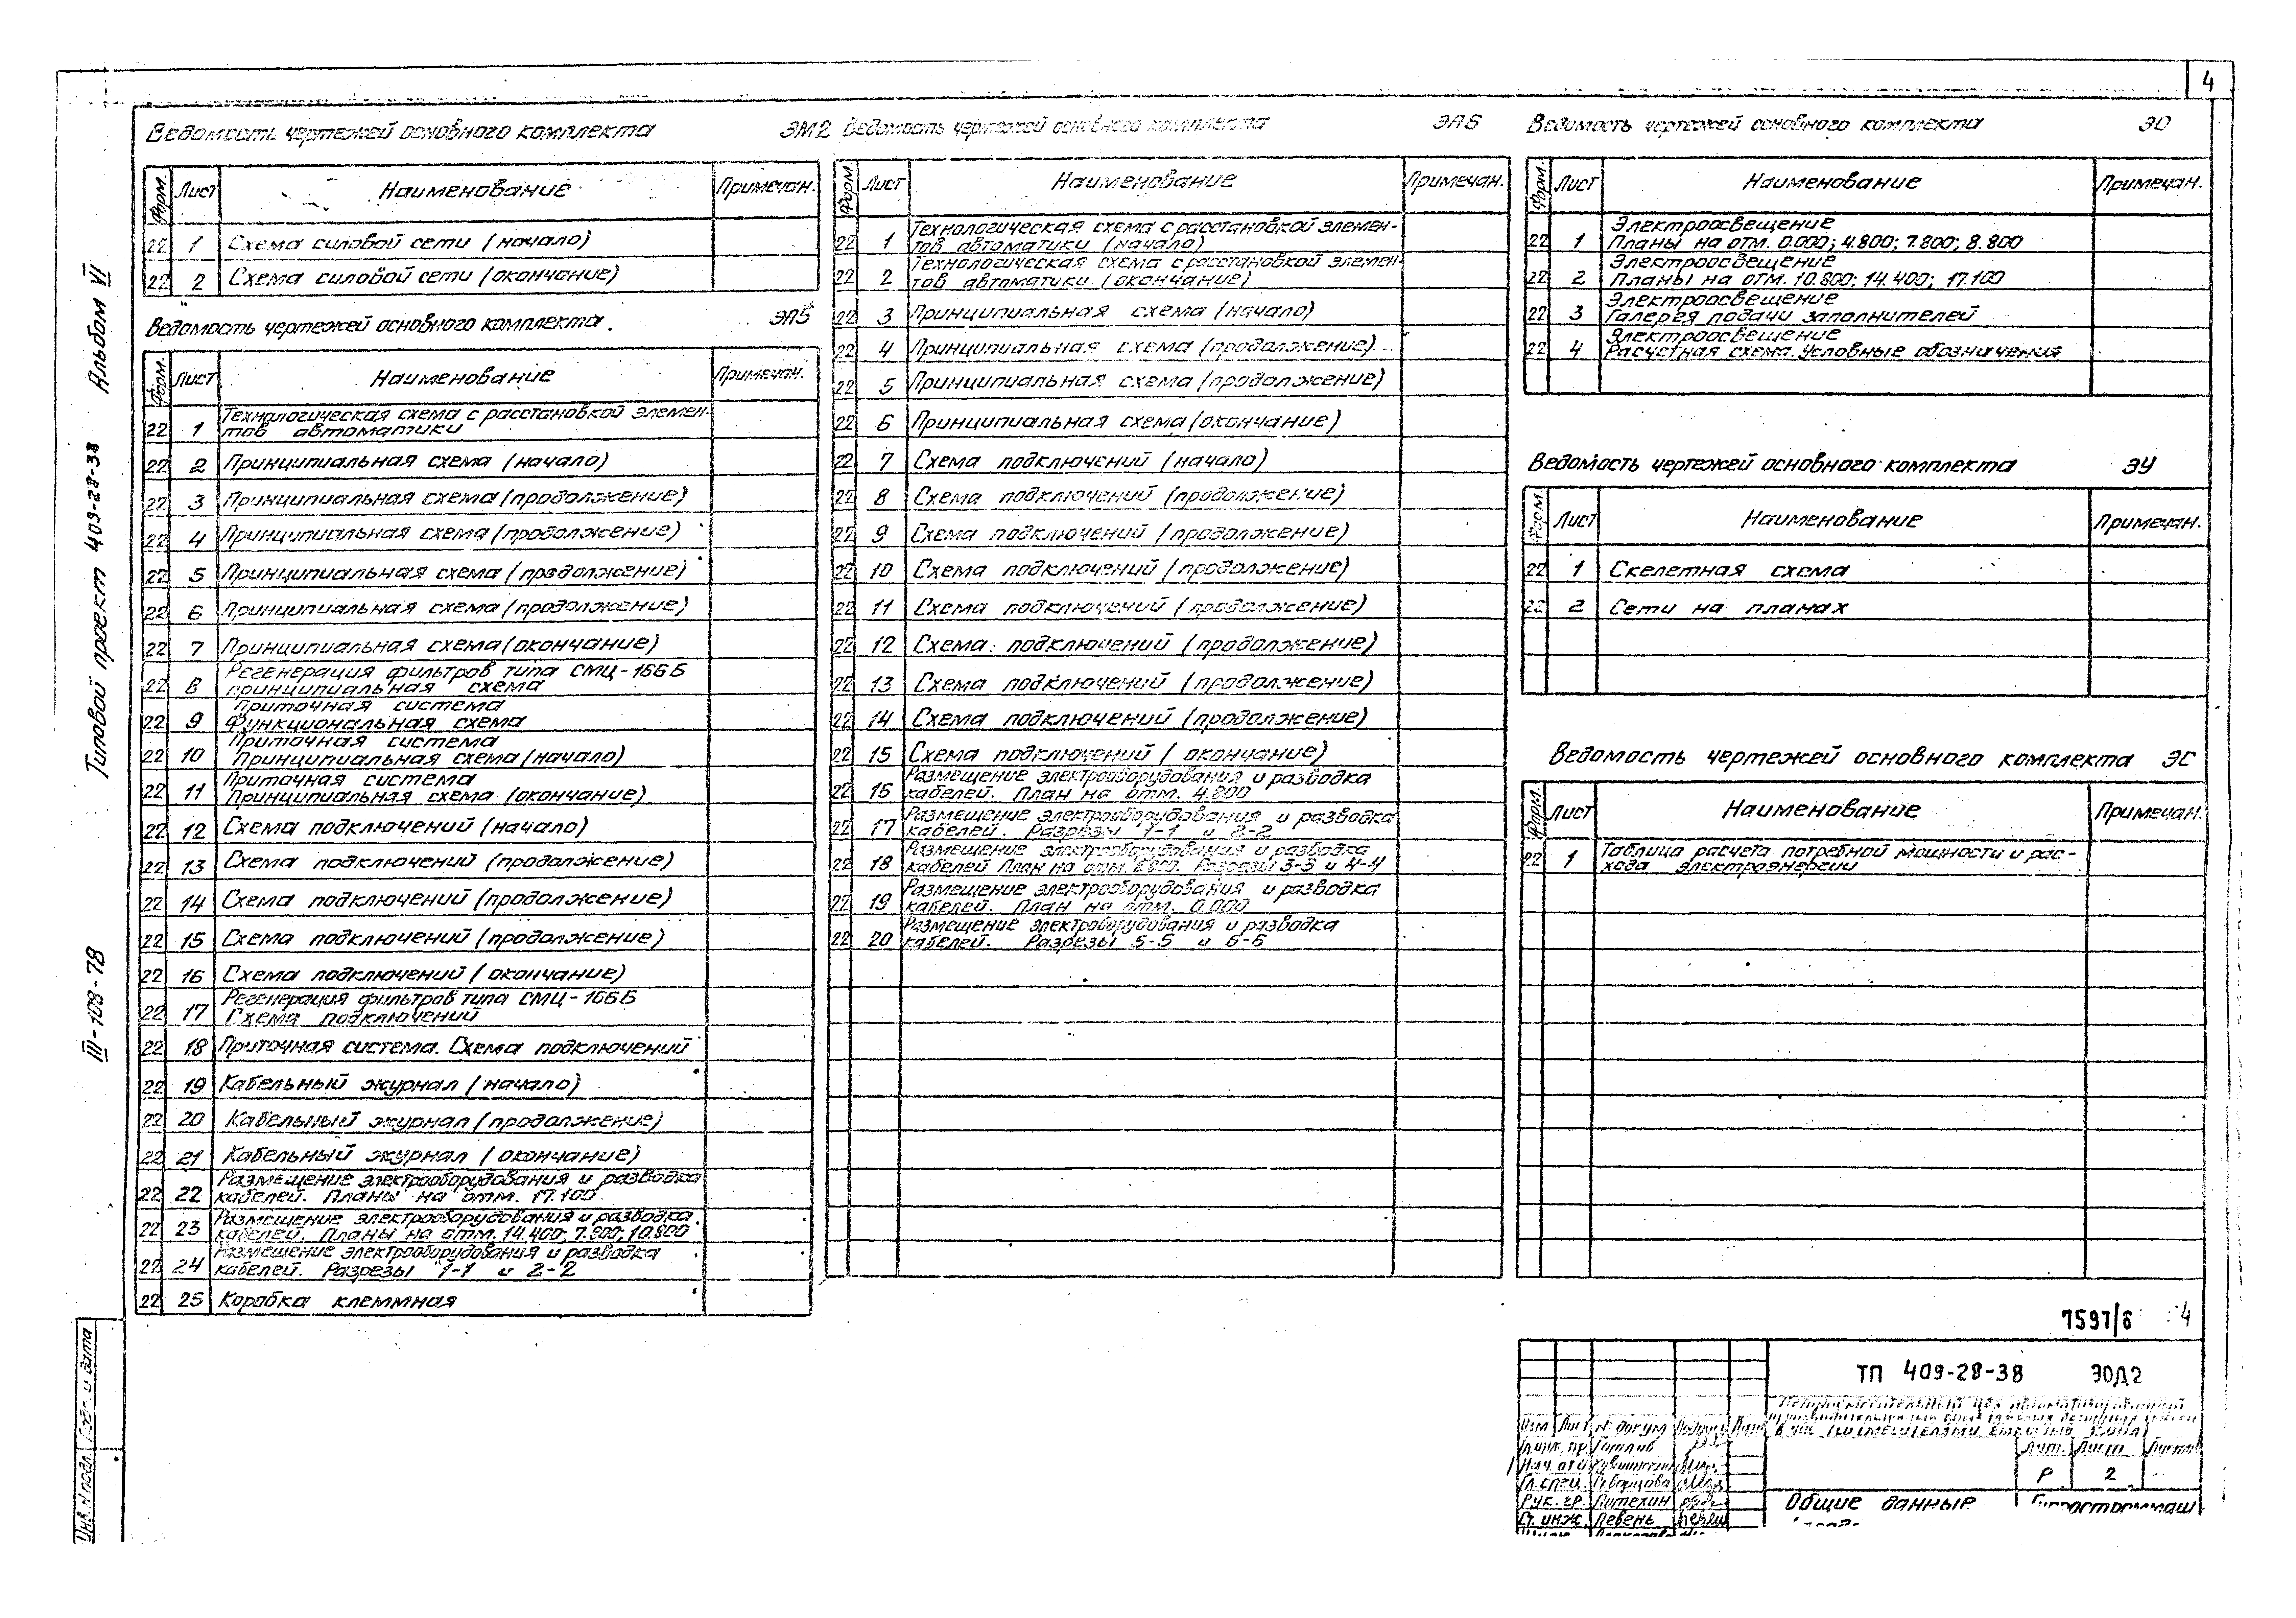 4
Ведомость чертежей основного комплекта ЭМ2
Форм. Лист Наименование Примечан.
22 1 Схема силовой сети (начало)
22 2 Схема силовой сети (окончание)
Ведомость чертежей основного комплекта. ЭП5
Форм. Лист Наименование Примечан.
22 1 Технологическая схема с расстановкой элемен-
тов автоматики
22 2 Принципиальная схема (начало)
22 3 Принципиальная схема (продолжение)
22 4 Принципиальная схема (продолжение)
22 5 Принципиальная схема (продолжение)
22 6 Принципиальная схема (продолжение)
22 7 Принципиальная схема (окончание)
22 8 Регенерация фильтров типа СМЦ-166Б
принципиальная схема
22 9 Приточная система
Функциональная схема
22 10 Приточная система
Принципиальная схема (начало)
22 11 Приточная система
Принципиальная схема (окончание)
22 12 Схема подключений (начало)
22 13 Схема подключений (продолжение)
22 14 Схема подключений (продолжение)
22 15 Схема подключений (продолжение)
22 16 Схема подключений (окончание)
22 17 Регенерация фильтров типа СМЦ-166Б
Схема подключений
22 18 Приточная система. Схема подключений
22 19 Кабельный журнал (начало)
22 20 Кабельный журнал (продолжение)
22 21 Кабельный журнал (окончание)
22 22 Размещение электрооборудования и разводка
кабелей. Планы на отм. 17.100
22 23 Размещение электрооборудования и разводка
кабелей. Планы на отм. 14.400; 7.800; 10.800
22 24 Размещение электрооборудования и разводка
кабелей. Разрезы 1-1 и 2-2
22 25 Коробка клеммная
Ведомость чертежей основного комплекта ЭП6
Форм. Лист Наименование Примечан.
22 1 Технологическая схема с расстановкой элемен-
тов автоматики (начало)
22 2 Технологическая схема с расстановкой элемен-
тов автоматики (окончание)
22 3 Принципиальная схема (начало)
22 4 Принципиальная схема (продолжение)
22 5 Принципиальная схема (продолжение)
22 6 Принципиальная схема (окончание)
22 7 Схема подключений (начало)
22 8 Схема подключений (продолжение)
22 9 Схема подключений (продолжение)
22 10 Схема подключений (продолжение)
22 11 Схема подключений (продолжение)
22 12 Схема подключений (продолжение)
22 13 Схема подключений (продолжение)
22 14 Схема подключений (продолжение)
22 15 Схема подключений (окончание)
22 16 Размещение электрооборудования и разводка
кабелей. План на отм. 4.800
22 17 Размещение электрооборудования и разводка
кабелей. Разрезы 1-1 и 2-2
22 18 Размещение электрооборудования и разводка
кабелей План на отм. Разрезы 3-3 и 4-4
22 19 Размещение электрооборудования и разводка
кабелей. План на отм. 0.000
22 20 Размещение электрооборудования и разводка
кабелей. Разрезы 5-5 и 6-6
Ведомость чертежей основного комплекта ЭО
Форм. Лист Наименование Примечан.
22 1 Электроосвещение
Планы на отм. 0.000; 4.800; 7.800; 8.800
22 2 Электроосвещение
Планы на отм. 10.800; 14.400; 17.100
22 3 Электроосвещение
Галерея подачи заполнителей
22 4 Электроосвещение
Расчетная схема. Условные обозначения
Ведомость чертежей основного комплекта ЭУ
Форм. Лист Наименование Примечан.
22 1 Скелетная схема
22 2 Сети на планах
Ведомость чертежей основного комплекта ЭС
Форм. Лист Наименование Примечан.
22 1 Таблица расчета потребной мощности и рас-
хода электроэнергии
7597/6 4
ТП 409-28-38 ЭОД2
Изм Лист № докум
Нач. отд
Гл. спец.
Рук. гр. Потехин
Ст. инж. Левень
Лит. Лист
Р 2
Общие данные
Гипростроммаш
Типовой проект 409-28-38 Альбом VI
III-108-78
Инв. № подл. Подп. и дата